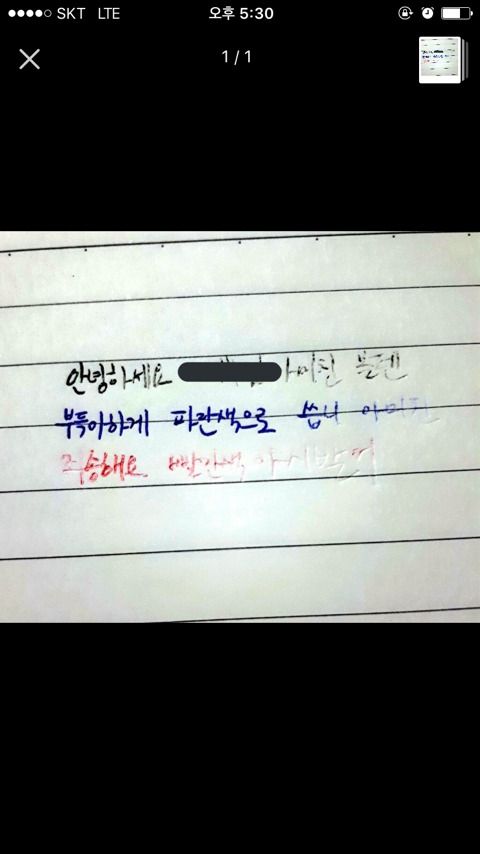 SKT LTE 오후 5:30
1 / 1
안녕하세요 아미친 볼펜
부득이하게 파란색으로 씁니 아미친
죄송해요 빨간색 아시바